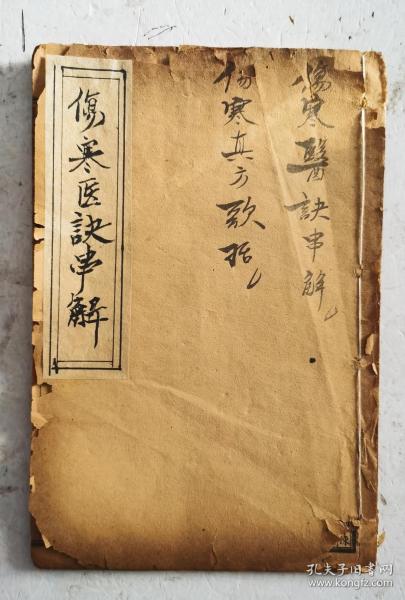 傷寒醫訣串解
傷寒真方歌括
傷寒医訣串解
孔夫子旧书网
www.kongfz.com